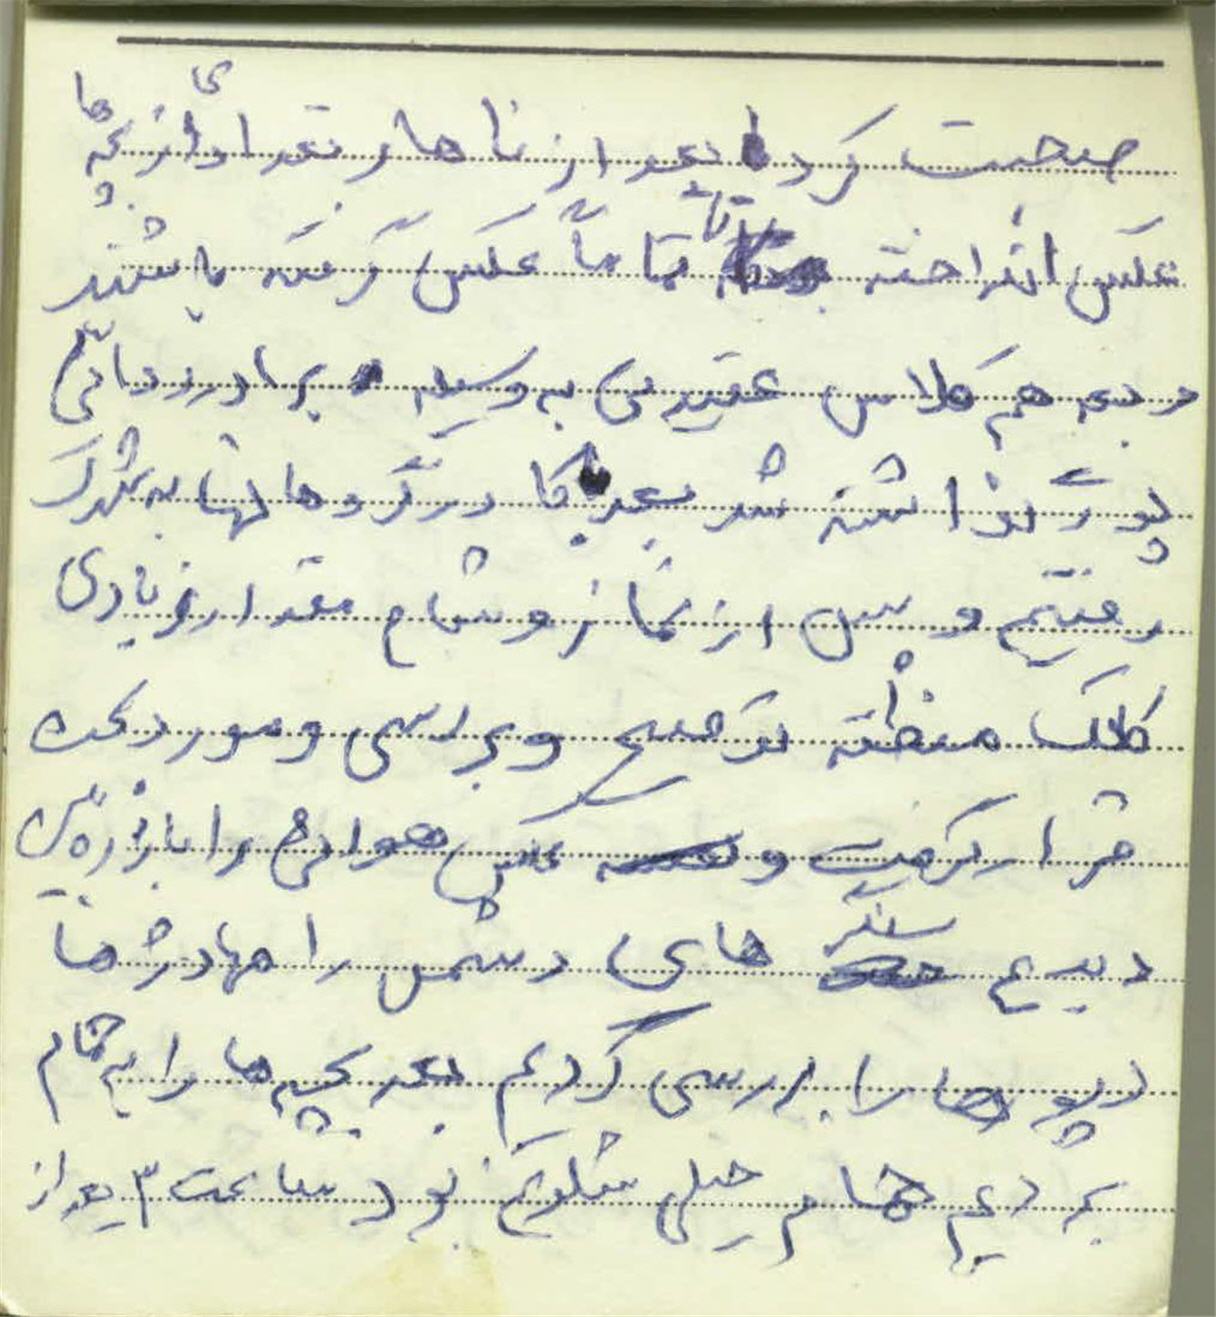 صحبت کرد بعد از ناهار تعدادی از بچه ها
عکس انداخته تا با ما عکس گرفته باشند
و بعد هم کلاس عقیدتی به وسیله برادر
پور گذاشته شد بعد با در گروهانها به شهرک
رفتیم و پس از نماز و شام مقدار زیادی
کلاک منطقه توضیح و بررسی و مورد بحث
قرار گرفت و عکس هوائی را با ذره بین
دیدیم سنگر های دشمن را
را بررسی کردیم بعد بچه ها را به حمام
بردیم حمام خیلی شلوغ بود ساعت ۳ بعد از